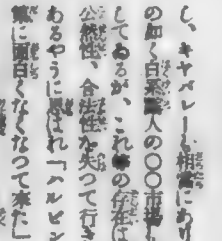 し、キャバレーも相當にあり
の如く白系露人の〇〇市場
してゐるが、これの存在は
公然性、合法性を失つて行き
あるやうに思はれ「ハルビン
に面白くなくなつて來た」